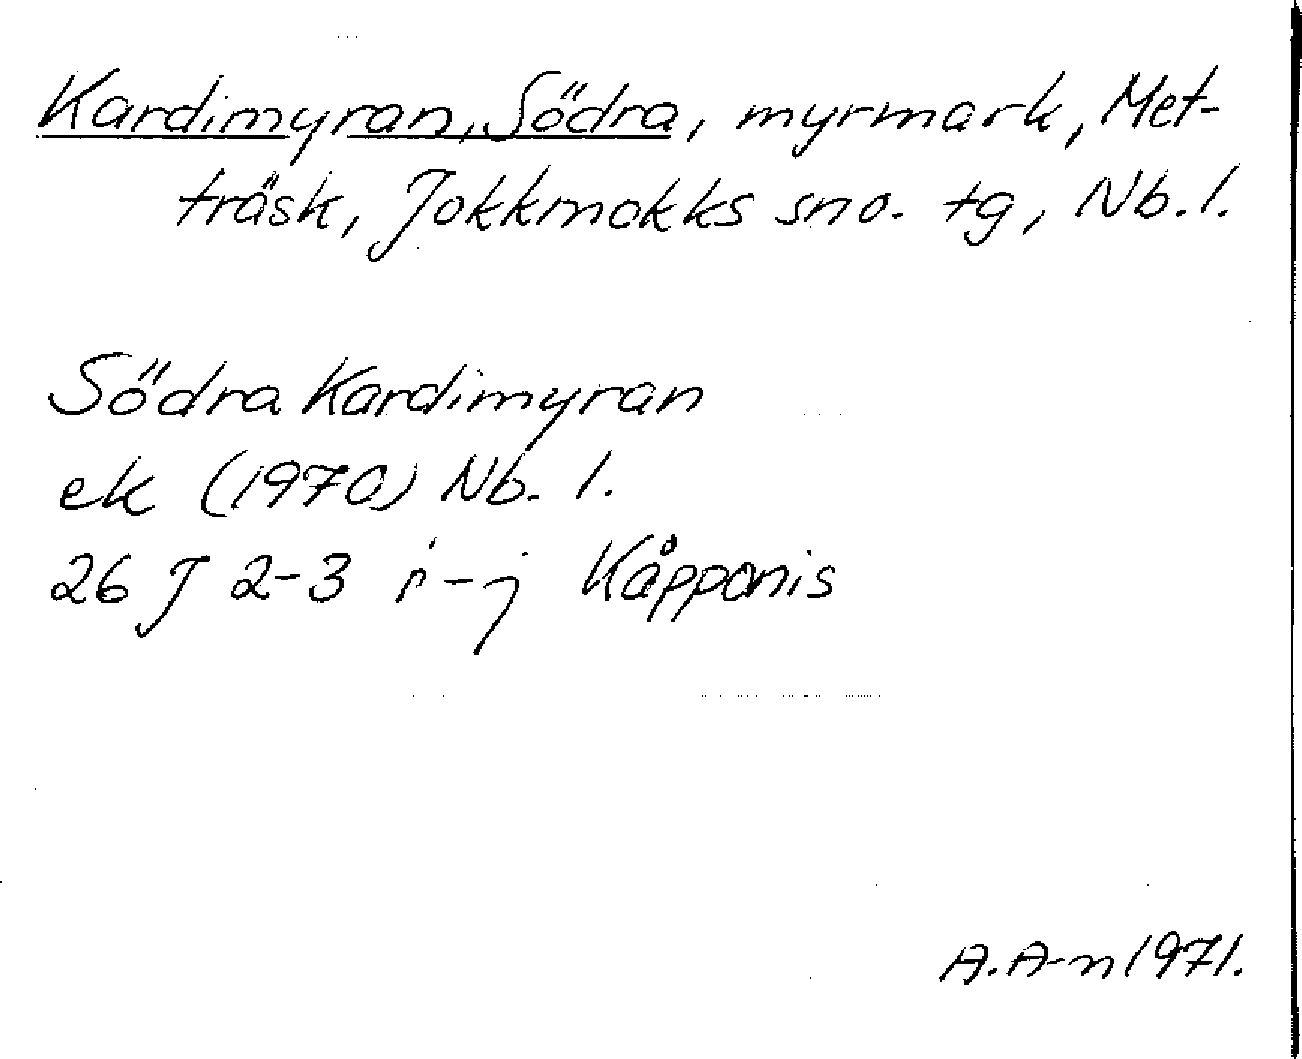 Kardimyran, Södra, myrmark, Met-
träsk, Jokkmokks sno. tg, Nb. l.
Södra Kardimyran
ek (1970) Nb. l.
26 J 2-3 i-j Kåpponis
A. A-n 1971.